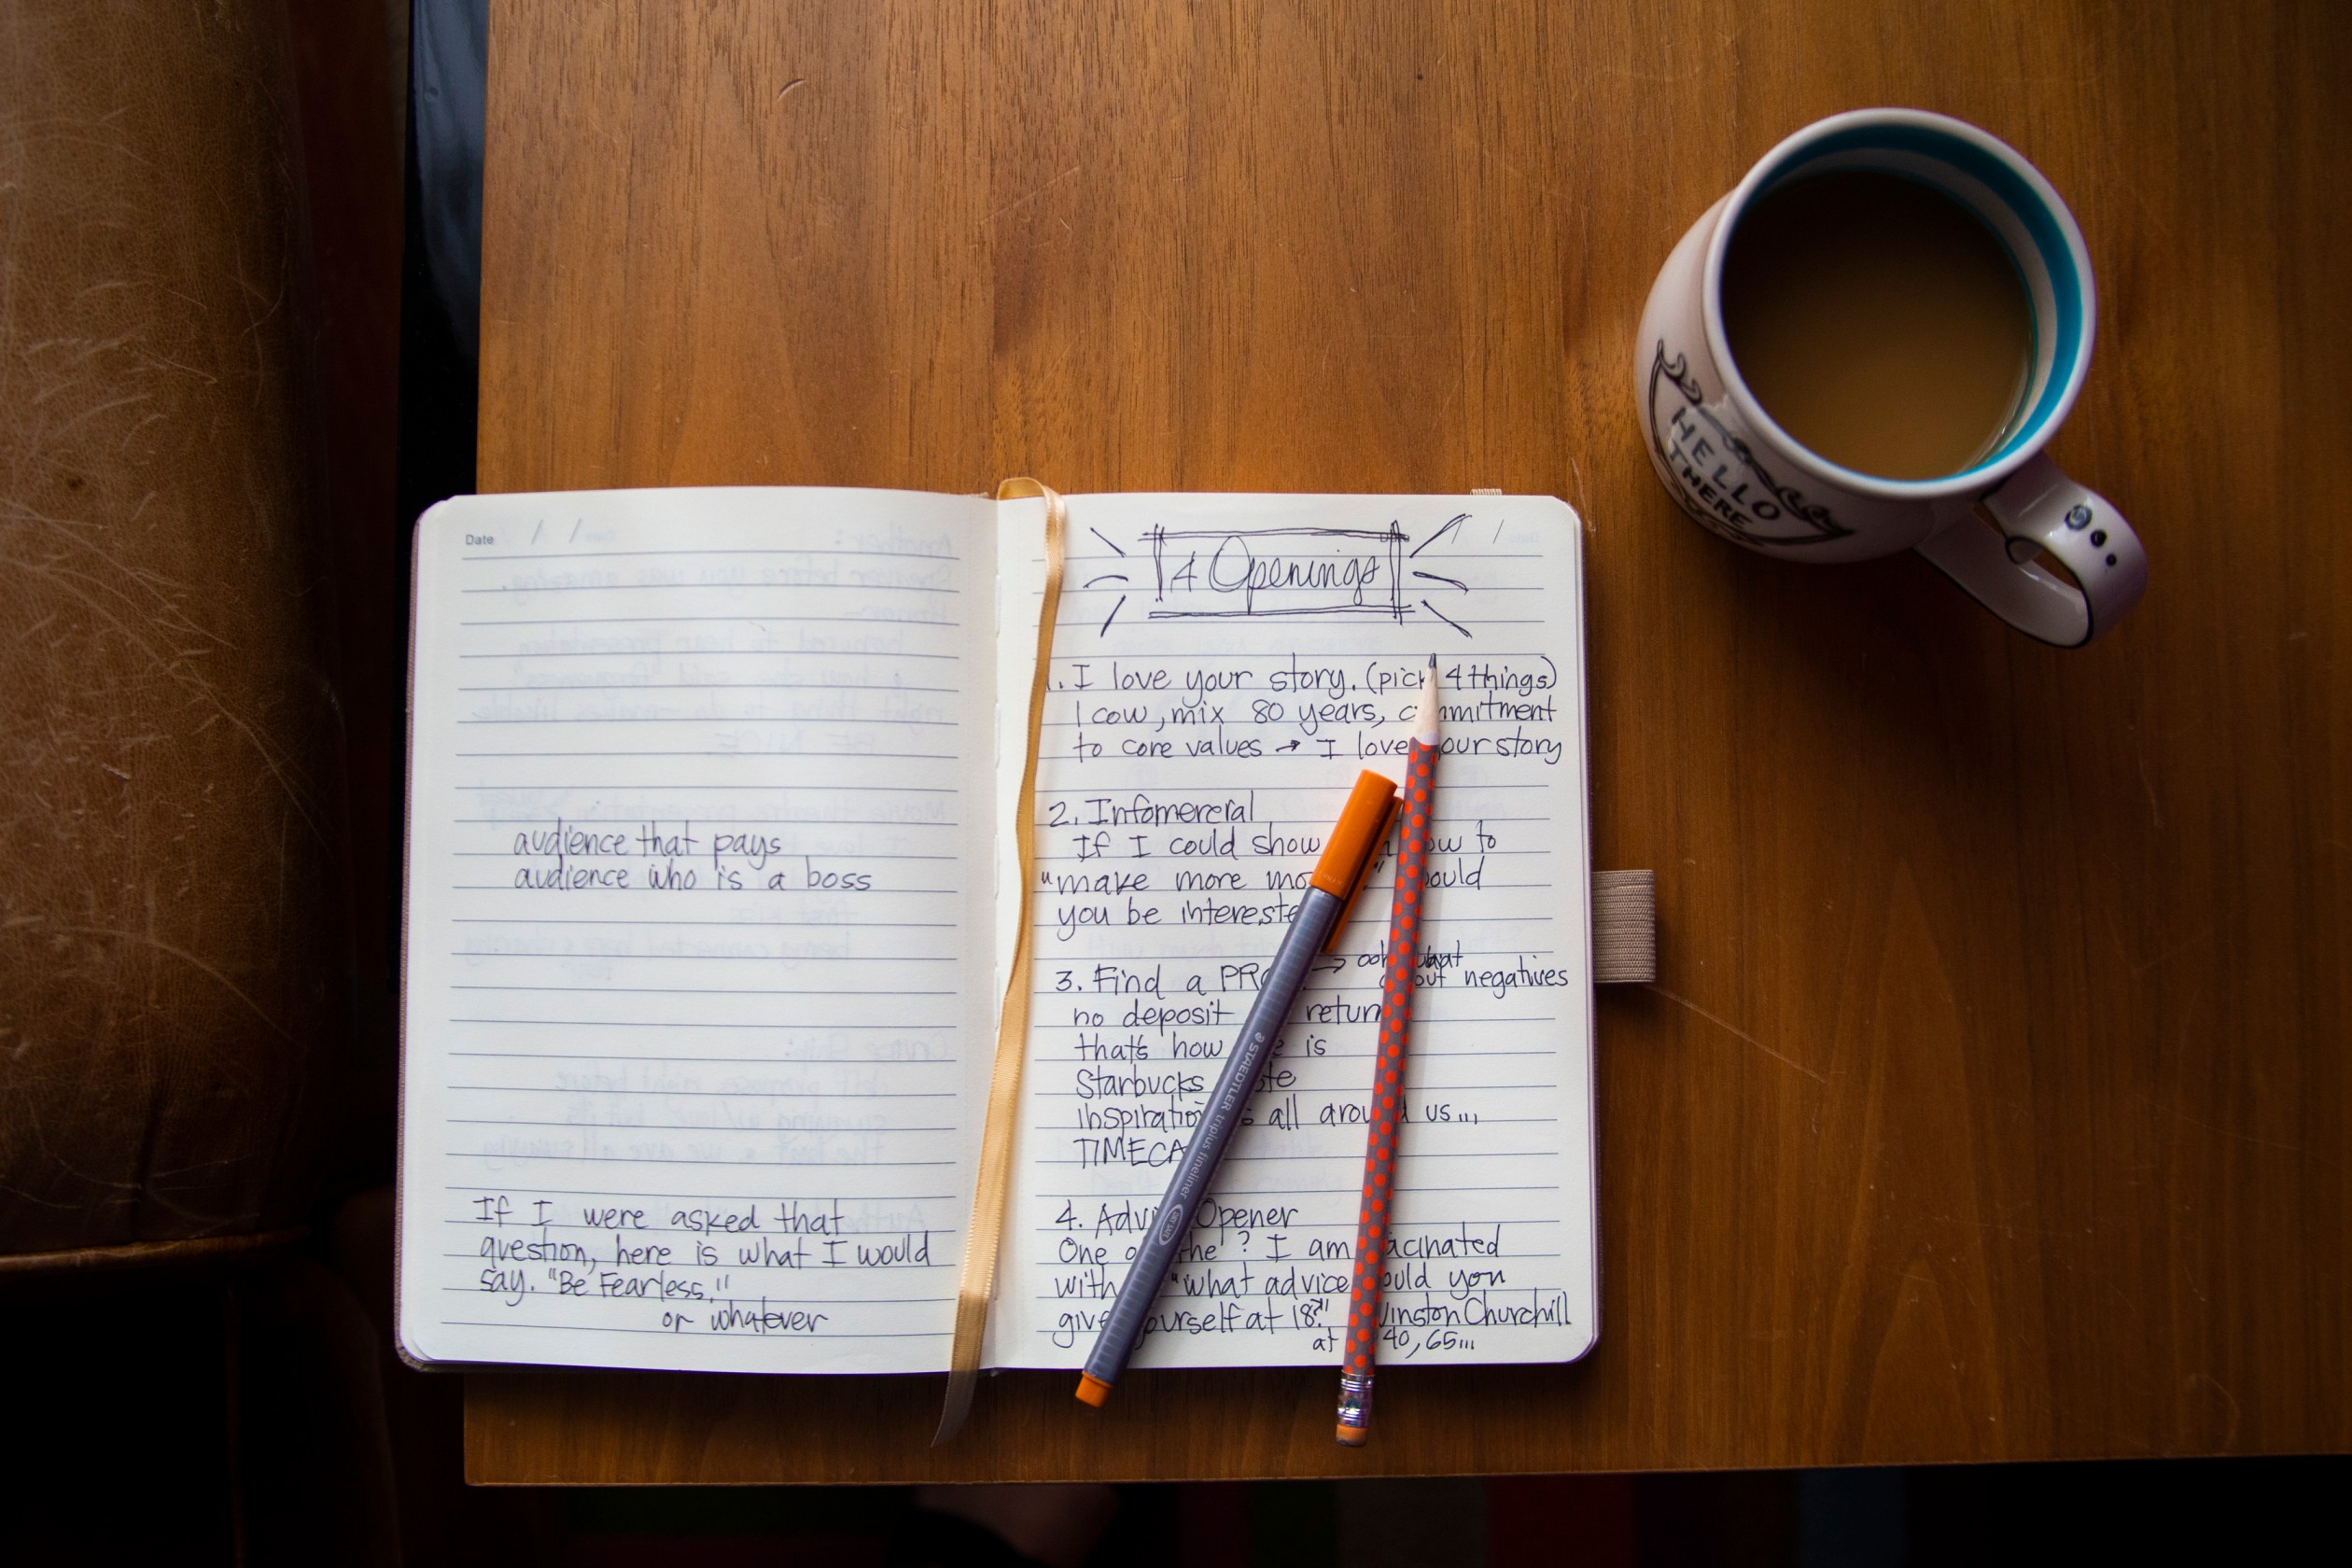 Date / /
audience that pays
audience who is a boss
If I were asked that
question, here is what I would
say. "Be Fearless."
or whatever
4 Openings
1. I love your story. (pick 4 things)
1 cow, mix 80 years, commitment
to core values → I love your story
2. Infomercral
If I could show how to
"make more would
you be interested
3. Find a → ooh what
about negatives
no deposit return
that's how is
Starbucks
inspiration is all around us...
4. Opener
One of the ? I am facinated
with "what advice would you
give yourself at 18?" Winston Churchill
at 40, 65...
STAEDTLER triplus fineliner
HELLO
THERE